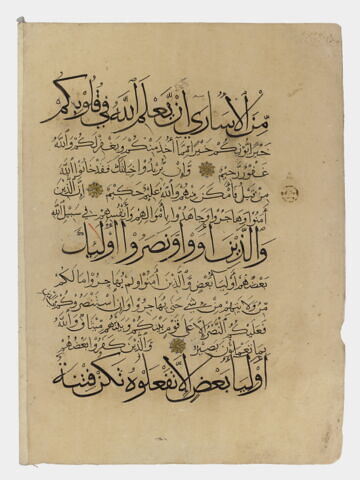 مِنَ الاسارى ان يعلم الله في قلوبكم
خيرا يؤتكم خيرا مما اخذ منكم ويغفر لكم والله
غفور رحيم وان يريدوا خيانتك فقد خانوا الله
من قبل فامكن منهم والله عليم حكيم ان الذين
امنوا وهاجروا وجاهدوا باموالهم وانفسهم في سبيل الله
والذين اووا ونصروا اوليك
بعضهم اوليا بعض والذين امنوا ولم يهاجروا ما لكم
من ولايتهم من شيء حتى يهاجروا وان استنصروكم في الدين
فعليكم النصر الا على قوم بينكم وبينهم ميثاق والله
بما تعملون بصير والذين كفروا بعضهم
اوليا بعض الا تفعلوه تكن فتنة